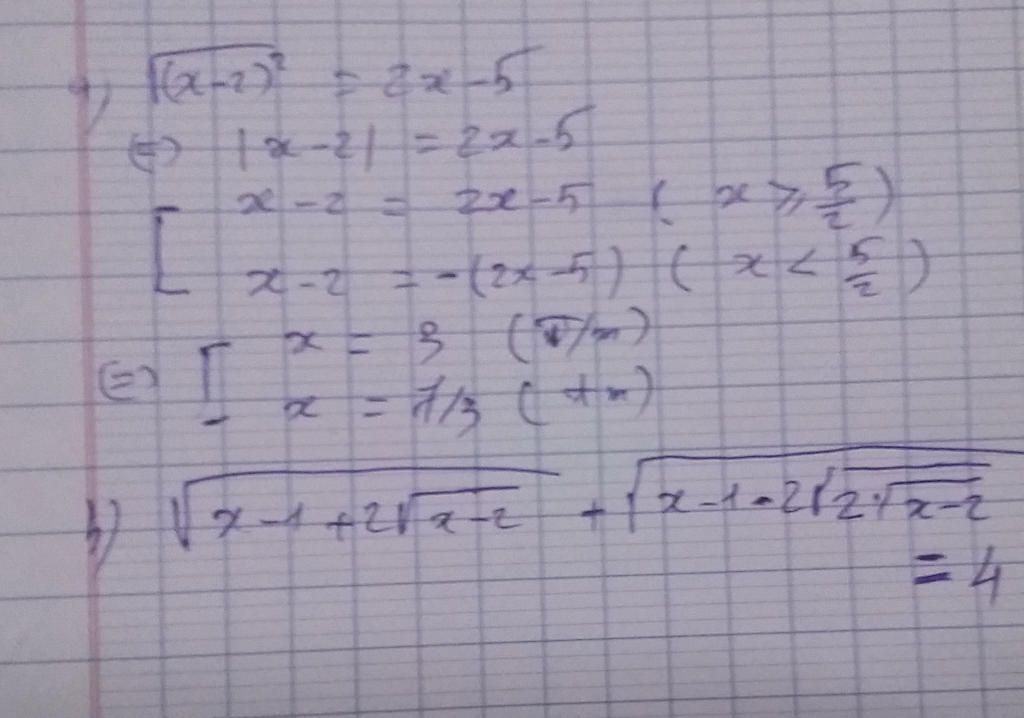 √(x-2)² = 2x-5
(=) |x-2| = 2x-5
[ x-2 = 2x-5 ( x ≥ 5/2 )
x-2 = -(2x-5) ( x < 5/2 )
(=) [ x = 3 (T/m)
x = 7/3 ( )
h) √(x-1+2√(x-2)) + √(x-1-2√(2√(x-2)))
= 4